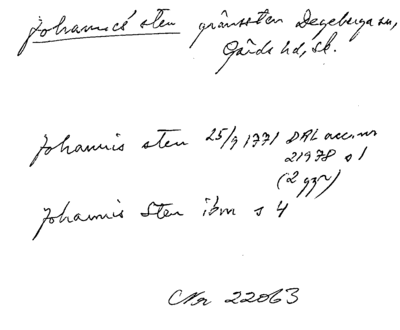 Johannis sten gränssten Degeberga sn,
Gärds hd, Sk.
Johannis sten 25/9 1771 DAL acc.nr
21978 s 1
(2 ggr)
Johannis Sten ibm s 4
Nr 22063